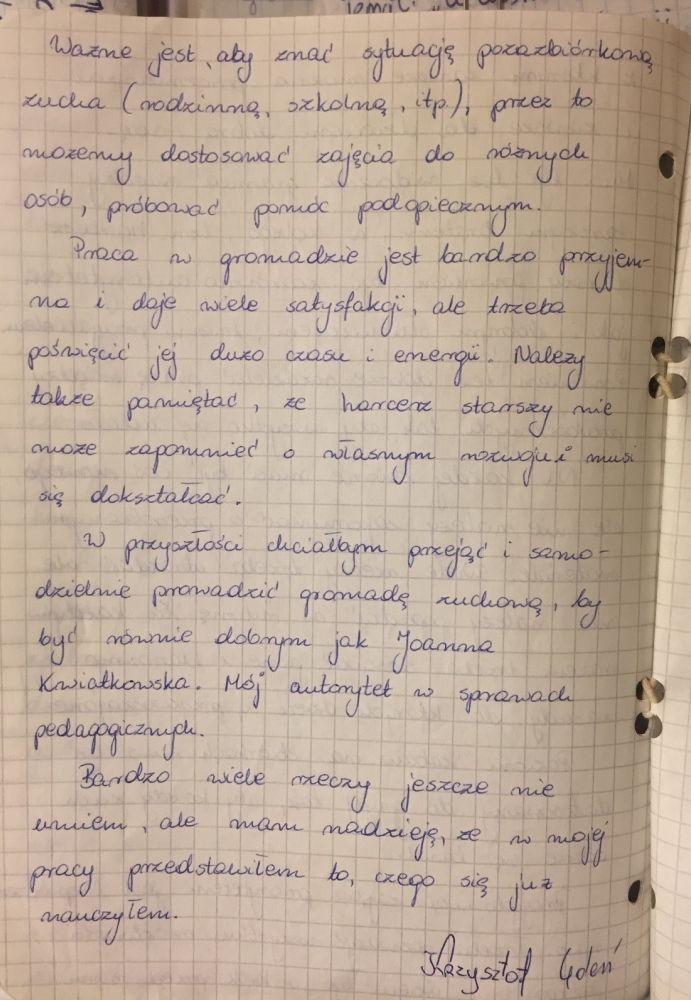 Ważne jest, aby znać sytuację pozazbiórkową
zucha (rodzinną, szkolną, itp.), przez to
możemy dostosować zajęcia do różnych
osób, próbować pomóc podopiecznym.
Praca w gromadzie jest bardzo przyjem-
na i daje wiele satysfakcji, ale trzeba
poświęcić jej dużo czasu i energii. Należy
także pamiętać, że harcerz starszy nie
może zapomnieć o własnym rozwoju i musi
się dokształcać.
W przyszłości chciałbym przejąć i samo-
dzielnie prowadzić gromadę zuchową, by
być równie dobrym jak Joanna
Kwiatkowska. Mój autorytet w sprawach
pedagogicznych.
Bardzo wiele rzeczy jeszcze nie
umiem, ale mam nadzieję, że w mojej
pracy przedstawiłem to, czego się już
nauczyłem.
Krzysztof